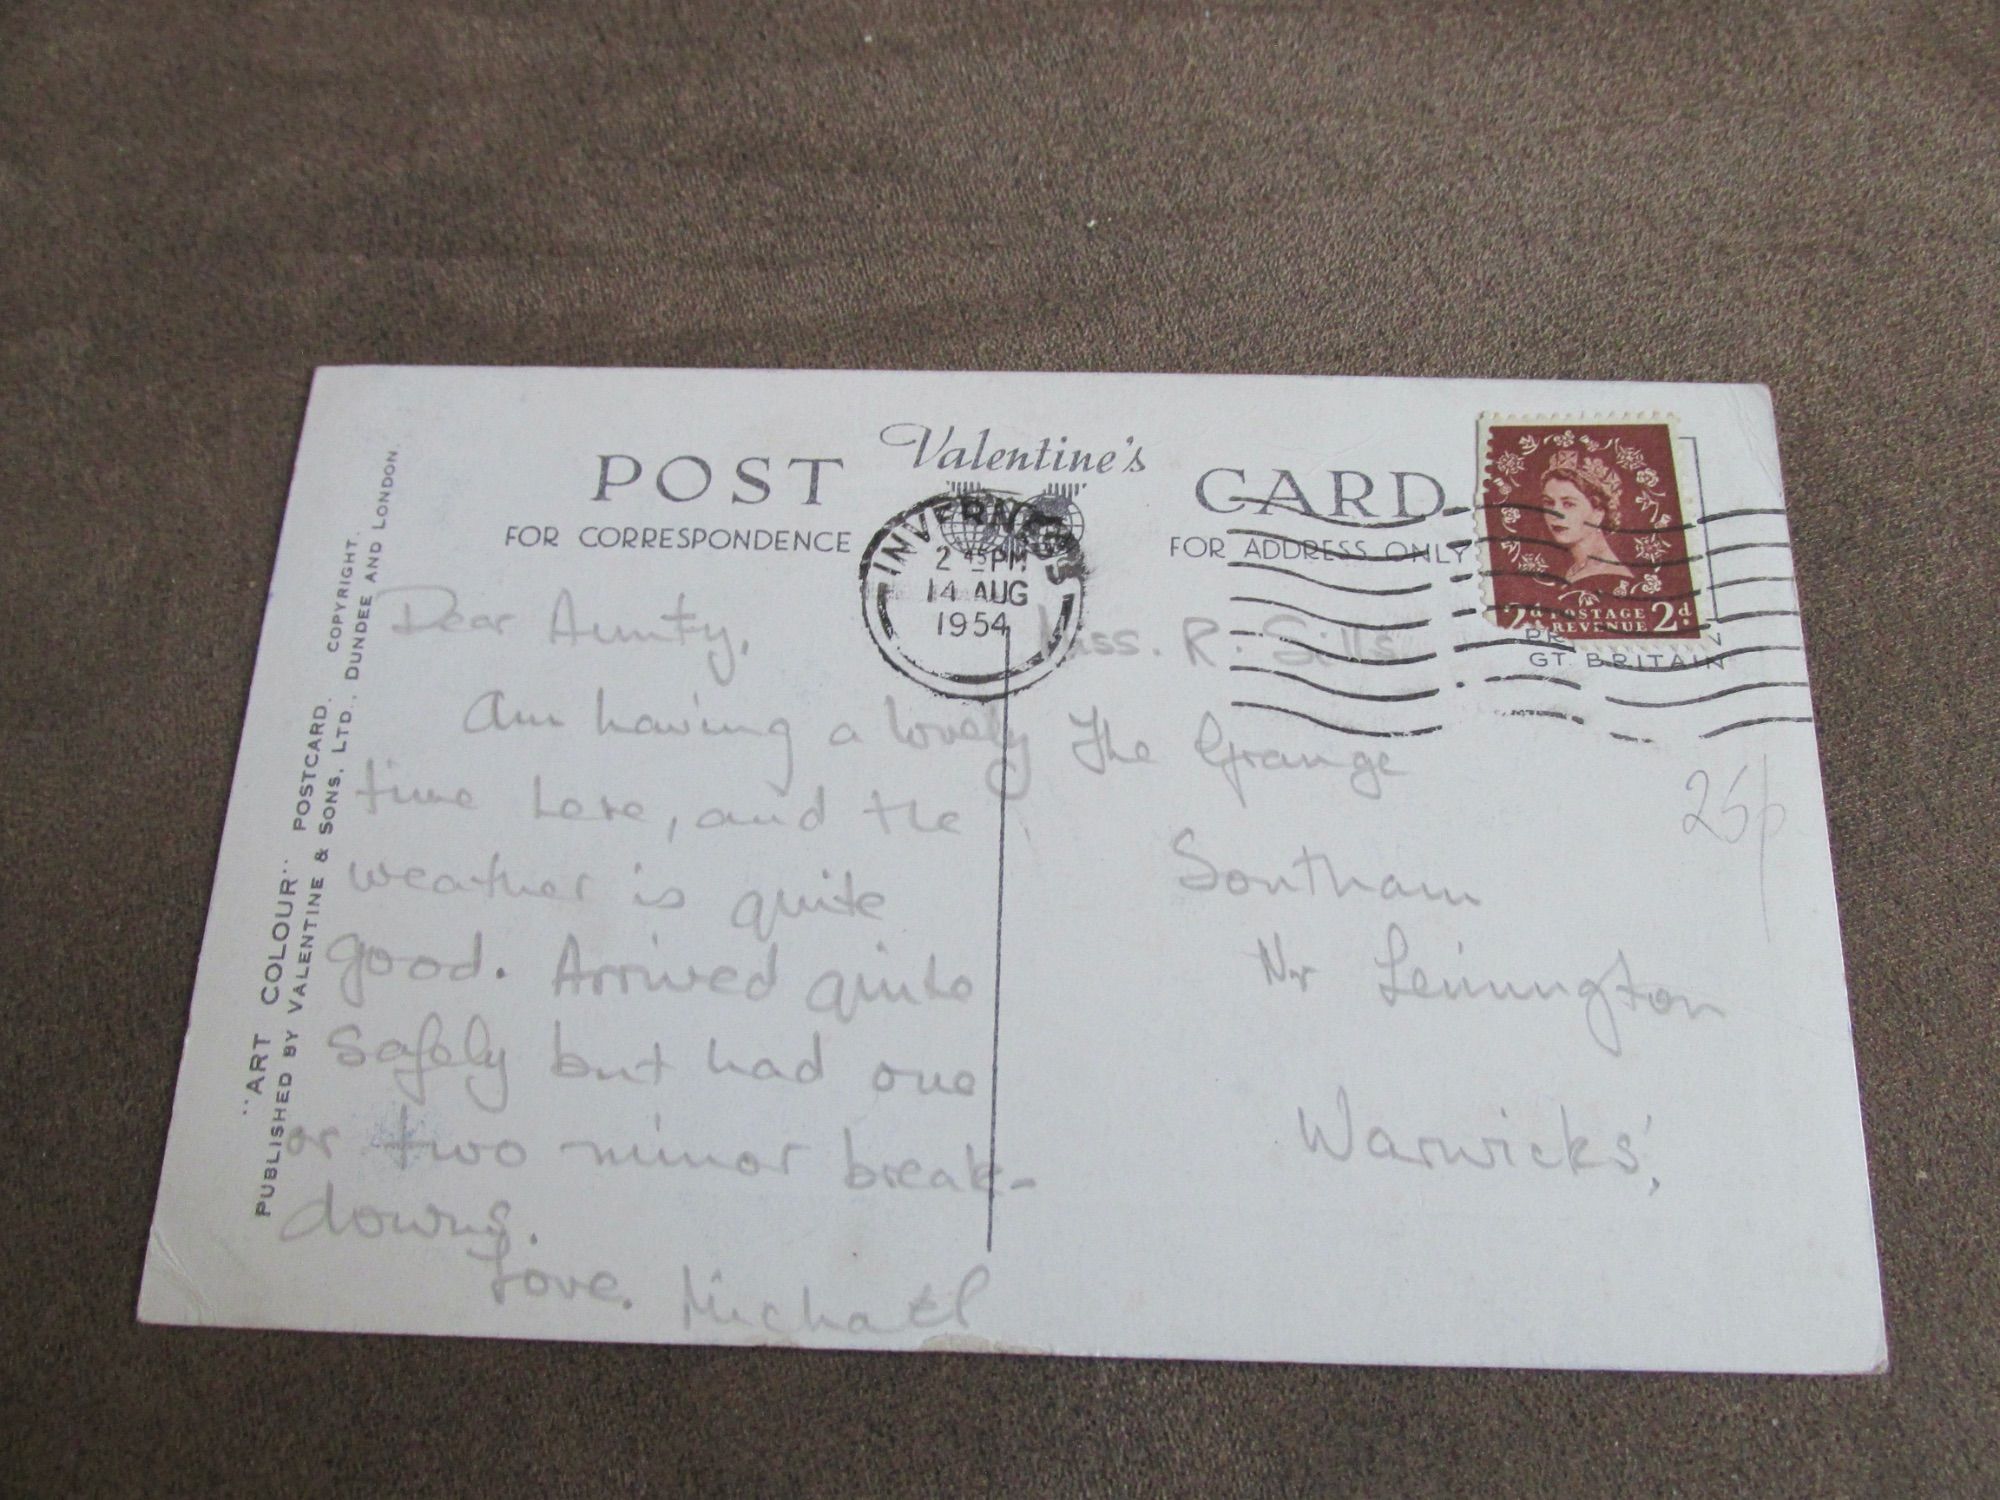 POST Valentine's CARD
FOR CORRESPONDENCE
FOR ADDRESS ONLY
INVERNESS
2 45 PM
14 AUG
1954
2d POSTAGE 2d
& REVENUE
GT. BRITAIN
Dear Aunty,
Am having a lovely
time here, and the
weather is quite
good. Arrived quite
safely but had one
or two minor break-
downs.
Love. Michael
Miss. R. Sills
The Grange
Southam
Nr Leimington
Warwicks',
25p
"ART COLOUR" POSTCARD. COPYRIGHT.
PUBLISHED BY VALENTINE & SONS, LTD., DUNDEE AND LONDON.